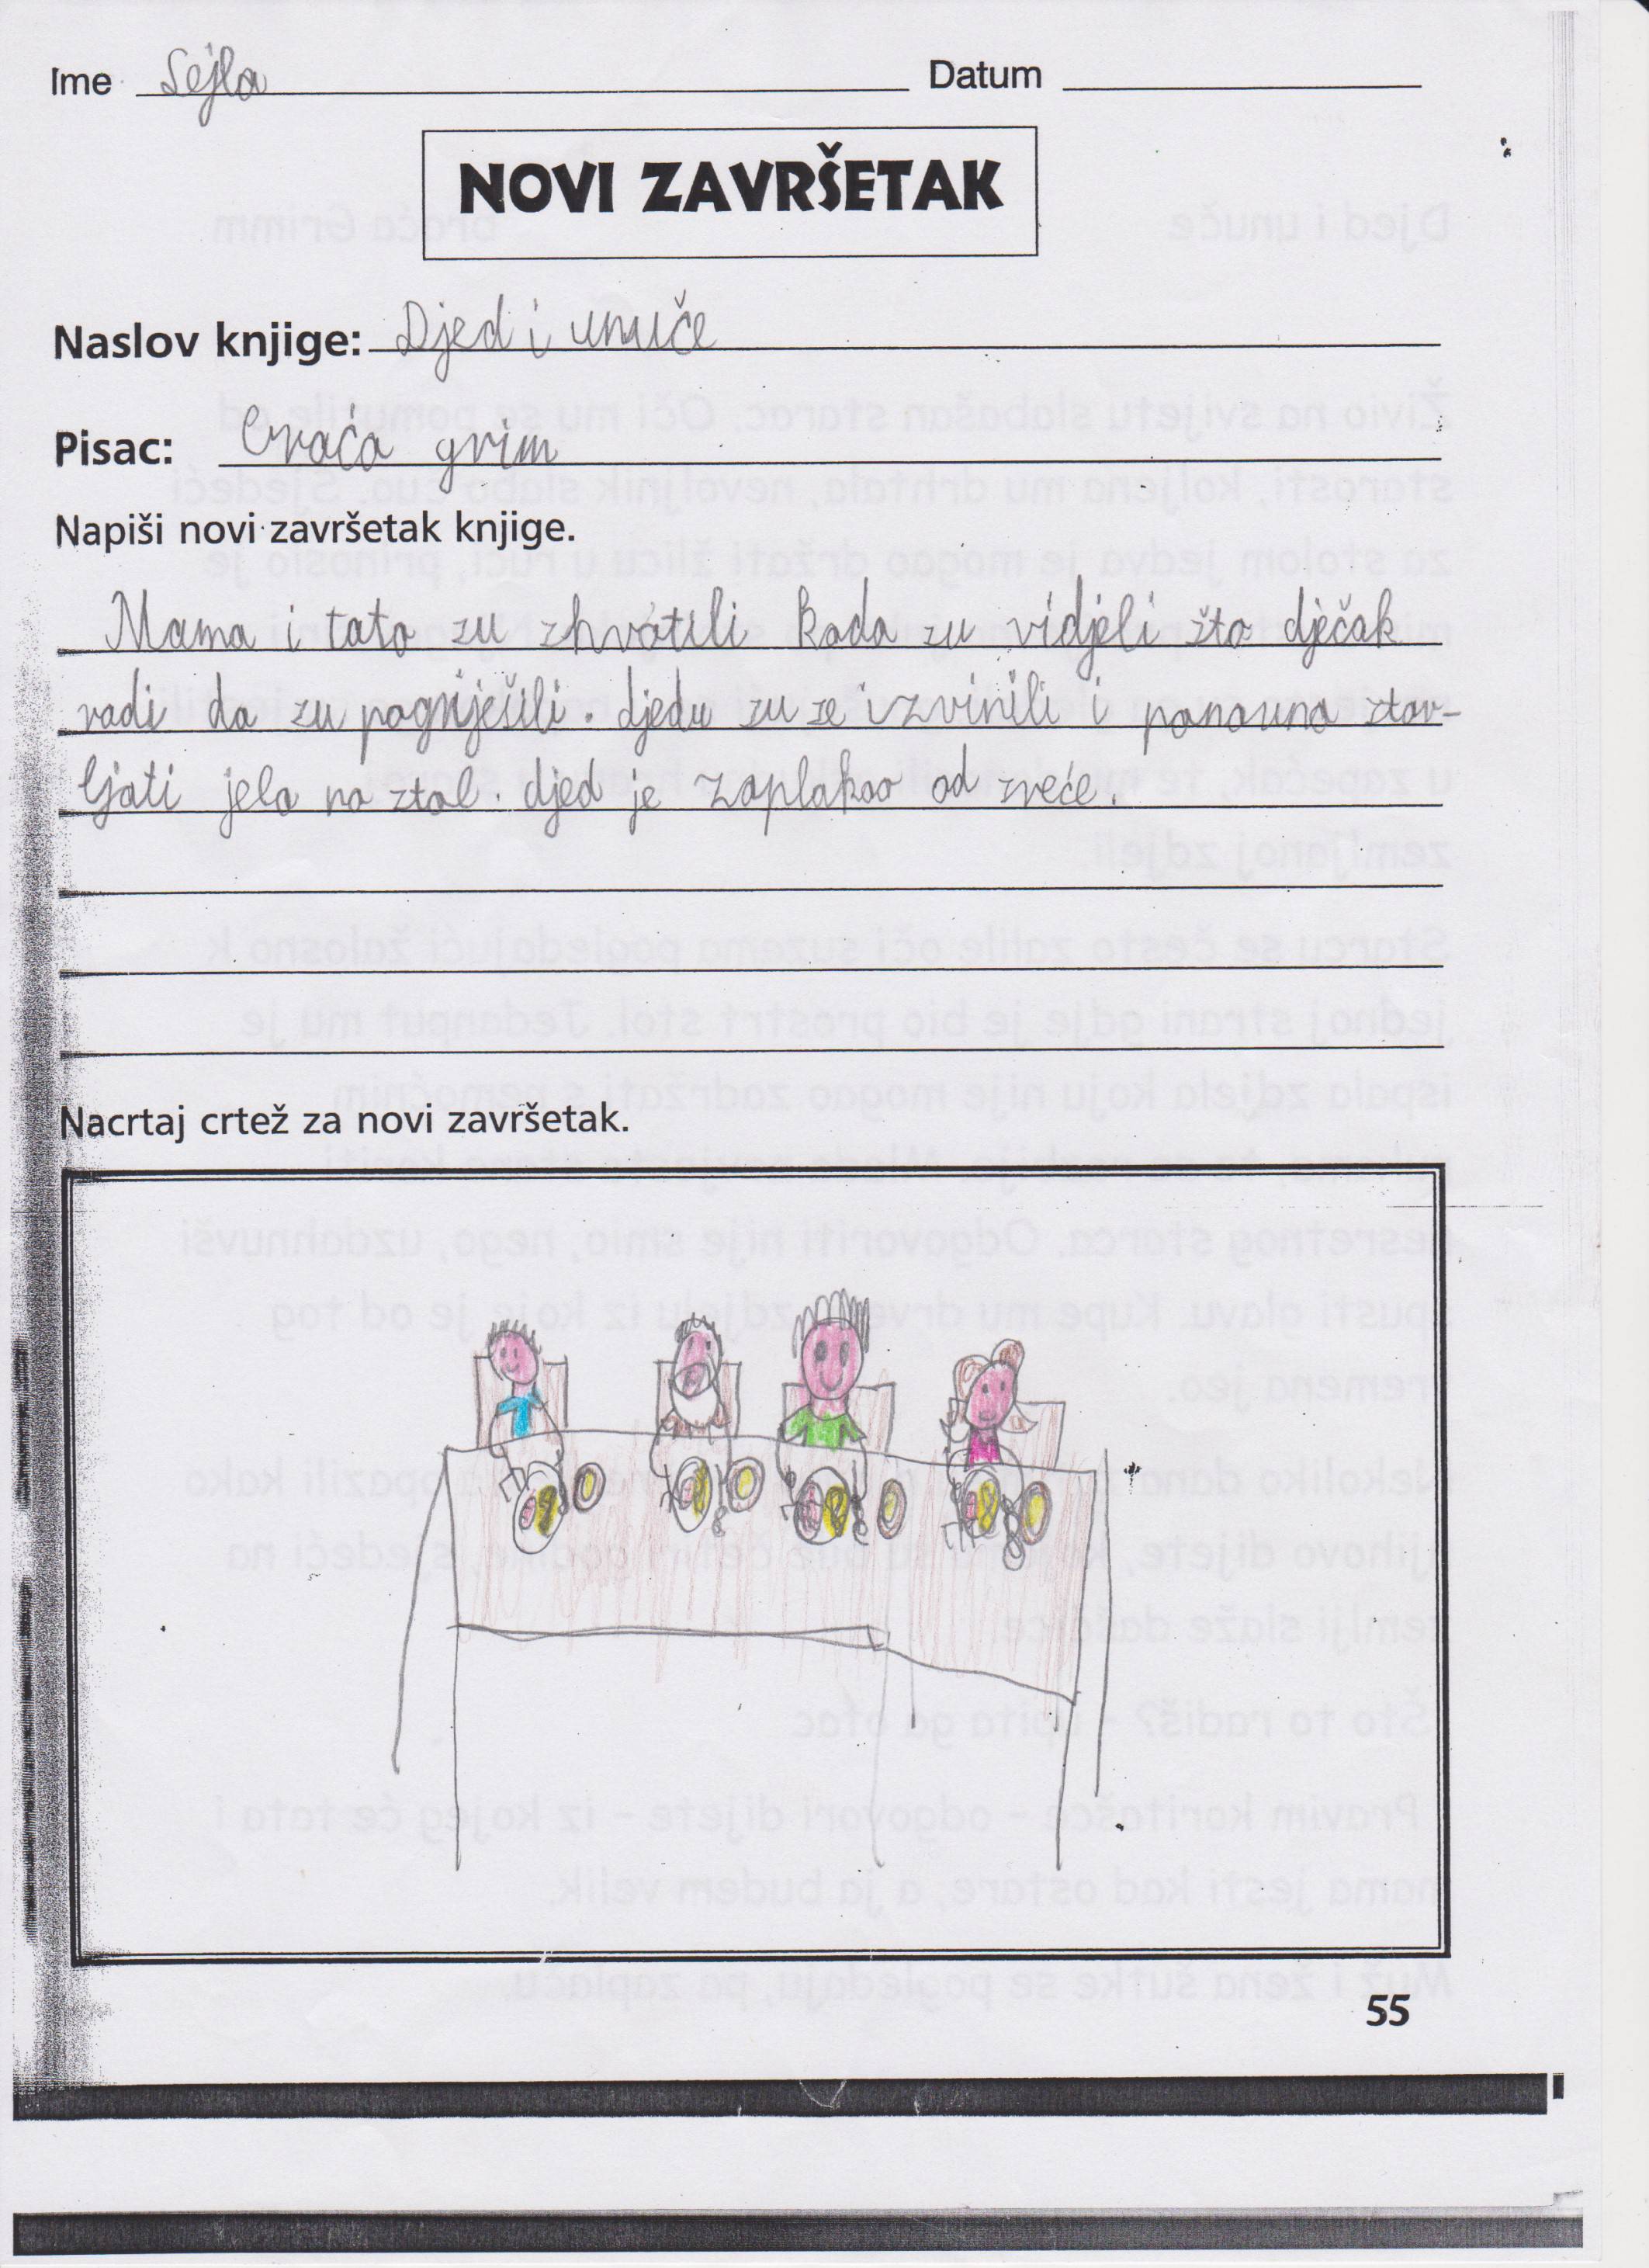 Ime Sejla Datum
NOVI ZAVRŠETAK
Naslov knjige: Djed i unuče
Pisac: Braća grim
Napiši novi završetak knjige.
Mama i tata su shvatili kada su vidjeli što dječak
radi da su pogriješili. djedu su se izvinili i ponovno stav-
ljati jelo na stol. djed je zaplakao od sreće.
Nacrtaj crtež za novi završetak.
55